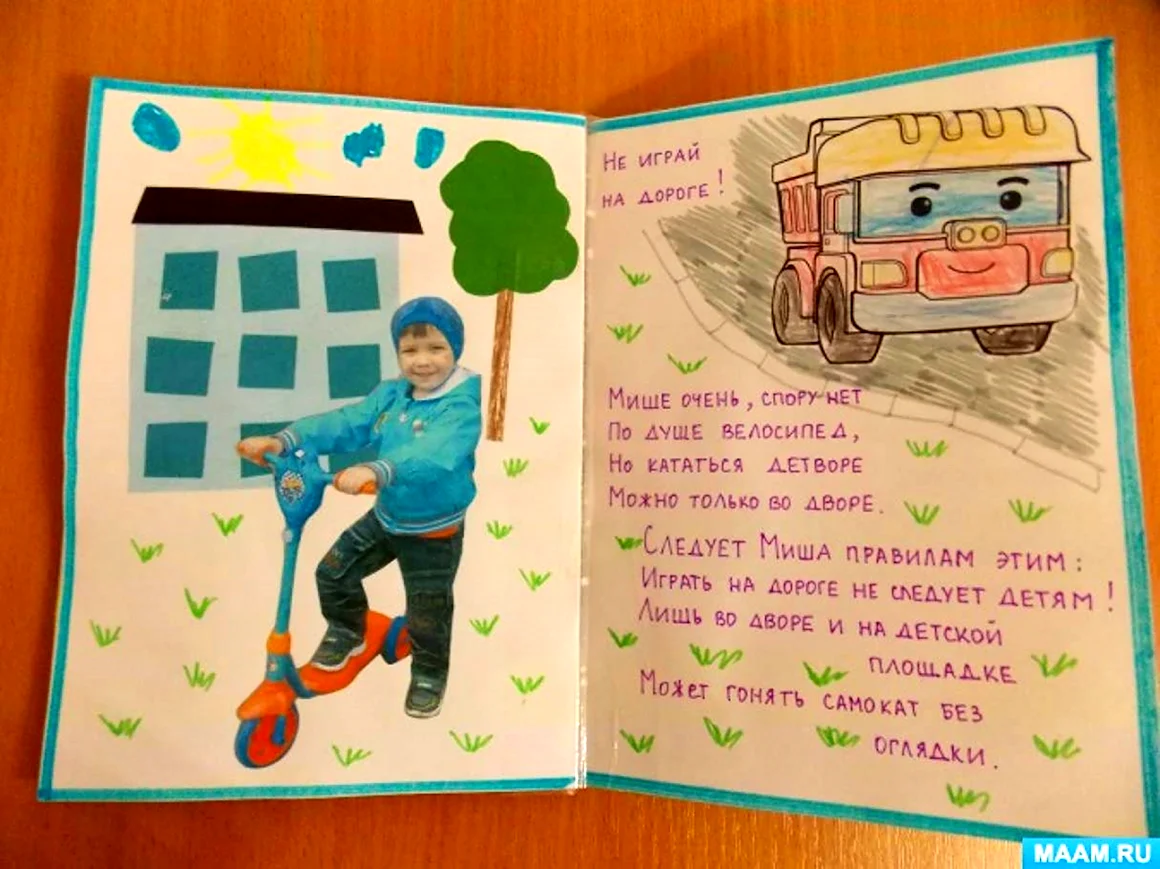 Не играй
на дороге!
Мише очень, спору нет
По душе велосипед,
Но кататься детворе
Можно только во дворе.
Следует Миша правилам этим:
Играть на дороге не следует детям!
Лишь во дворе и на детской
площадке
Может гонять самокат без
оглядки.
MAAM.RU